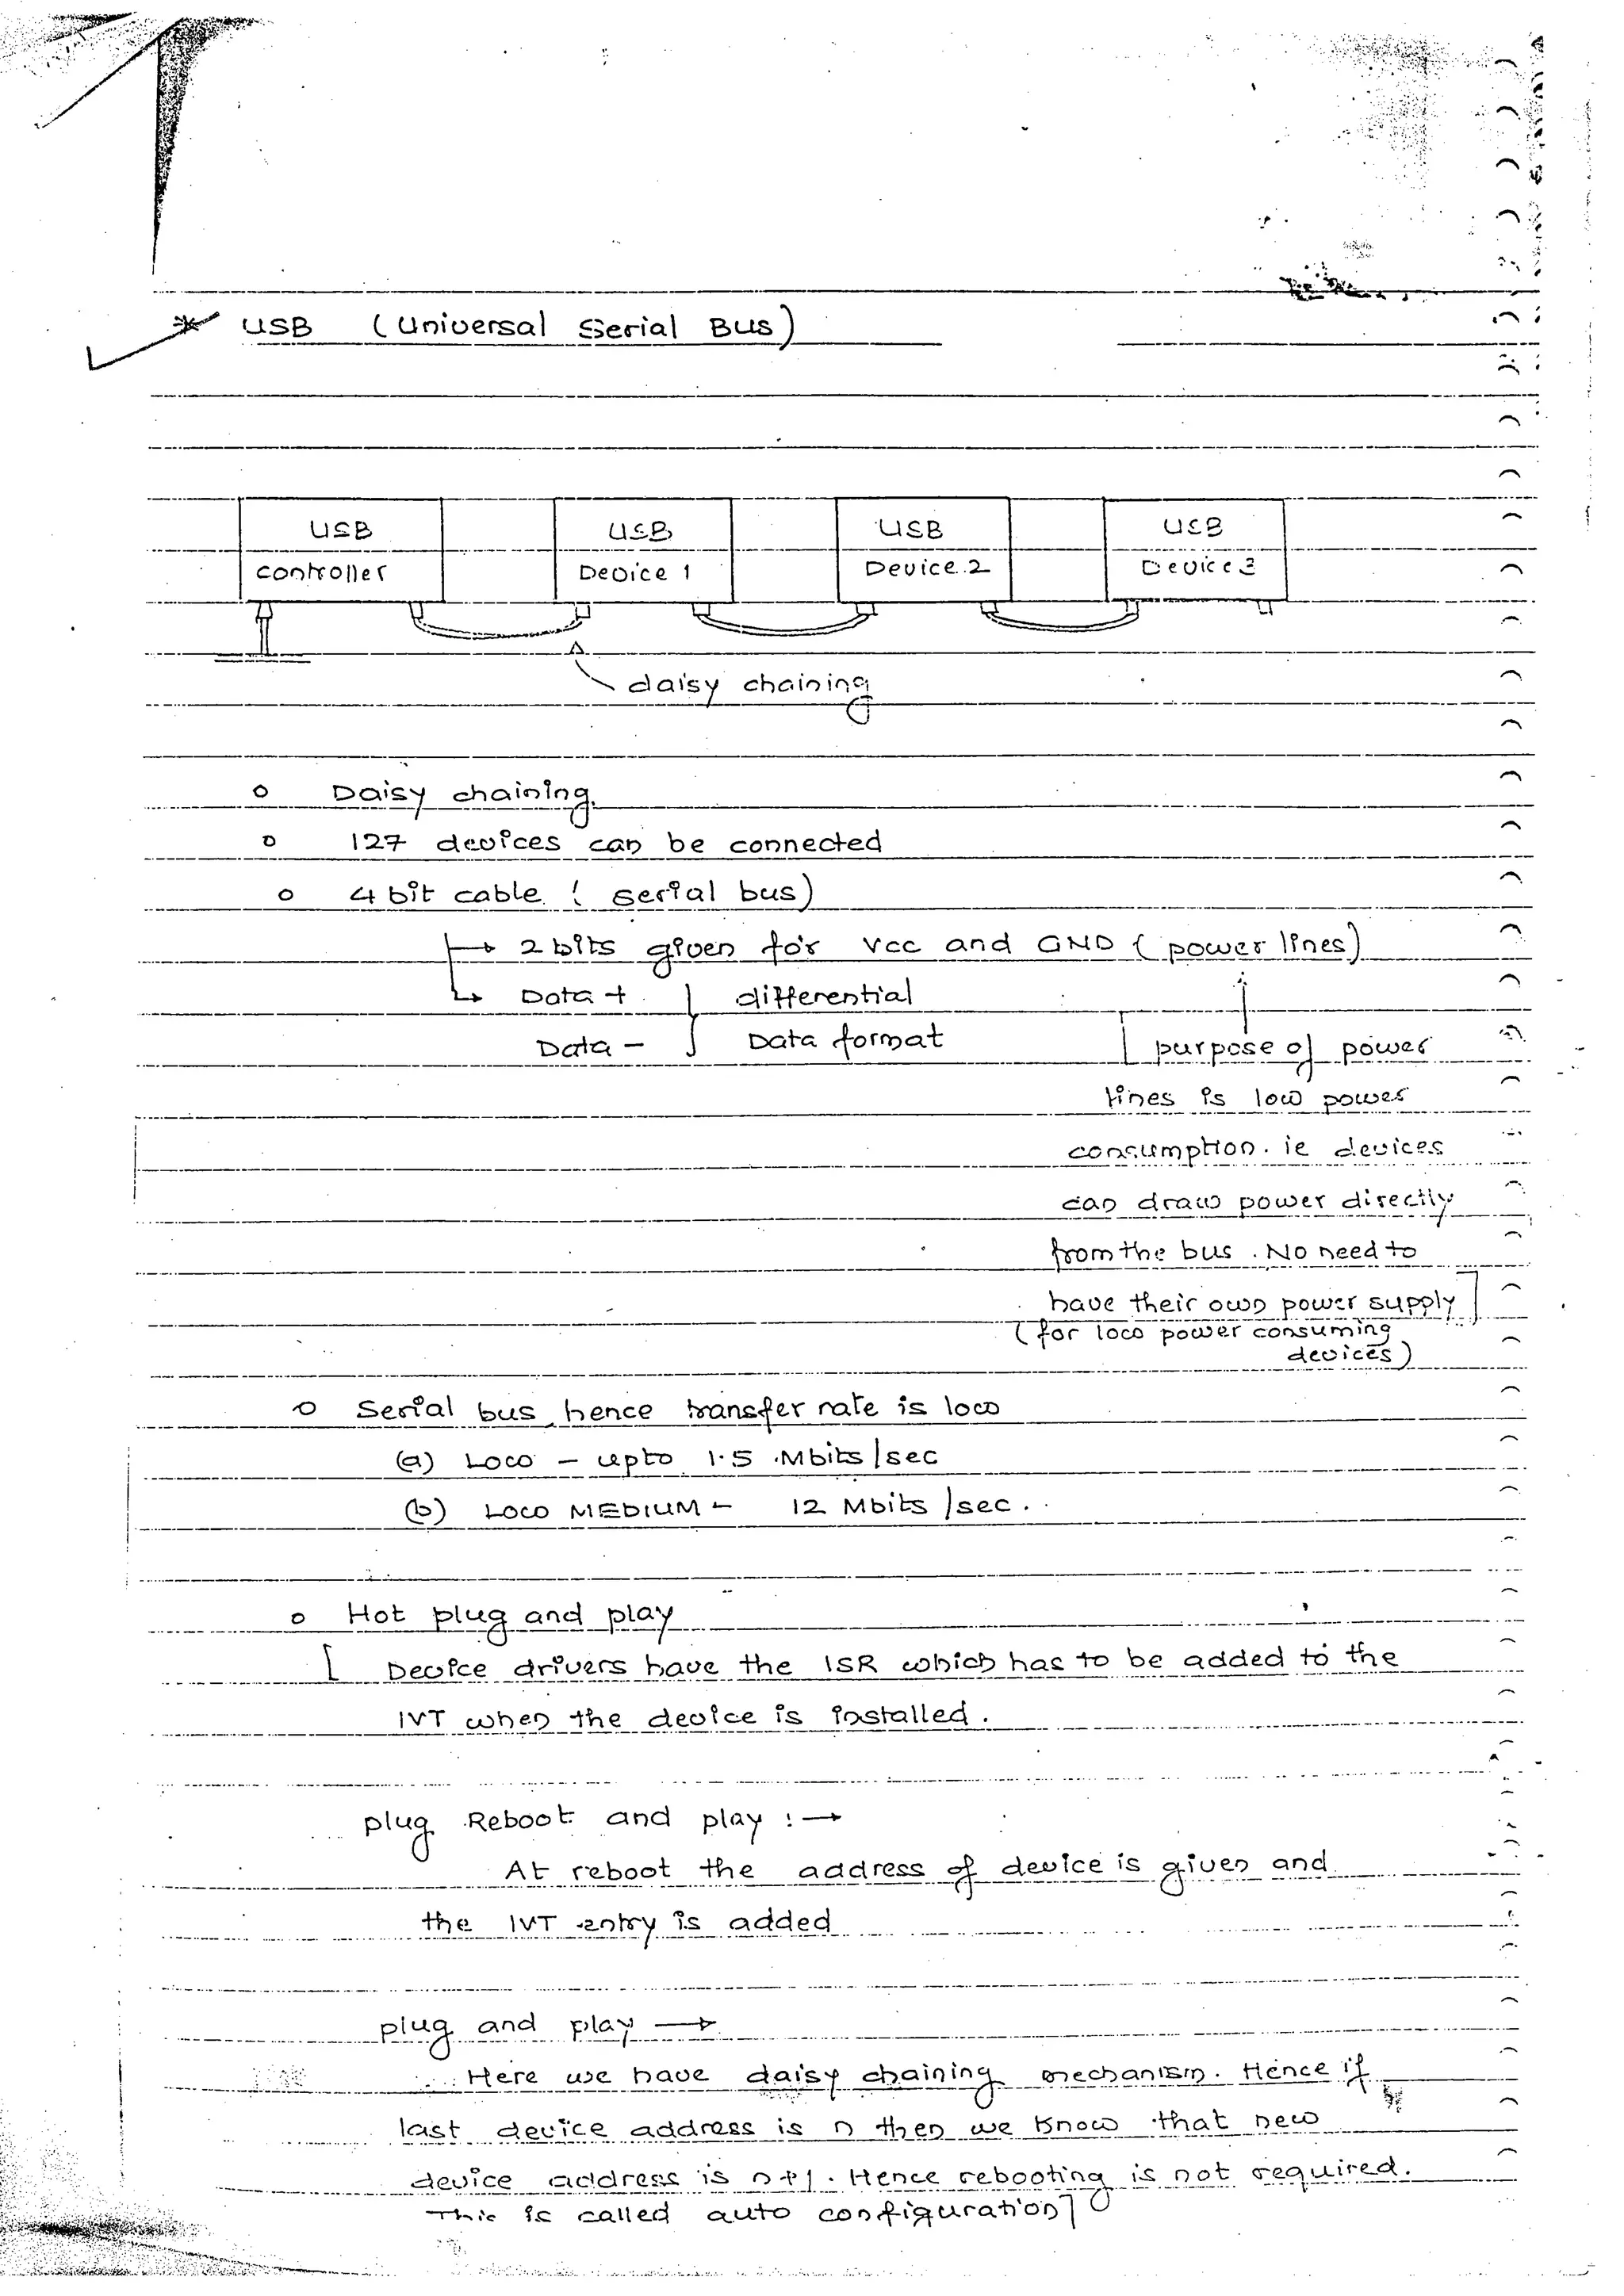 * USB (Universal Serial Bus)
USB controller
USB Device 1
USB Device 2
USB Device 3
daisy chaining
o Daisy chaining
o 127 devices can be connected
o 4 bit cable ( serial bus)
→ 2 bits given for Vcc and GND ( power lines)
↳ Data + } differential
Data - } Data format
[ purpose of power
lines is low power
consumption. ie devices
can draw power directly
from the bus. No need to
have their own power supply ]
(for low power consuming
devices)
o Serial bus hence transfer rate is low
(a) Low - upto 1.5 Mbits/sec
(b) Low MEDIUM - 12 Mbits/sec.
o Hot plug and play
[ Device drivers have the ISR which has to be added to the
IVT when the device is installed.
plug Reboot and play : →
At reboot the address of device is given and
the IVT entry is added
plug and play →
Here we have daisy chaining mechanism. Hence if
last device address is n then we know that new
device address is n+1. Hence rebooting is not required.
This is called auto configuration]